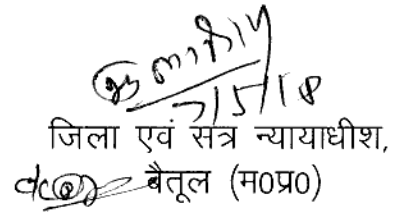 7/5/18
जिला एवं सत्र न्यायाधीश,
बैतूल (म0प्र0)